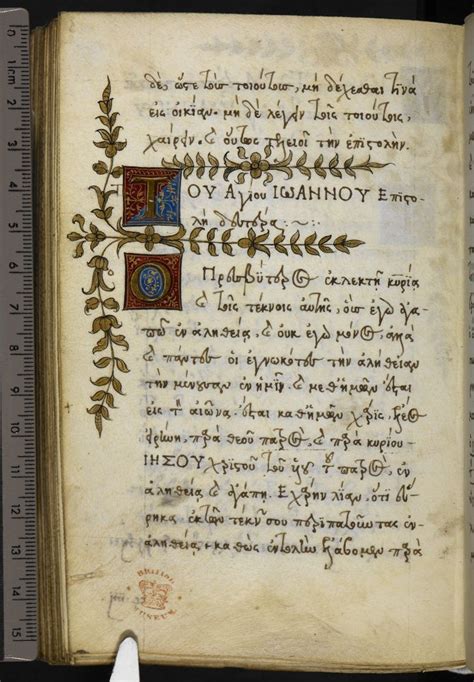 δὲ, ὥστε τοῖς τοιούτοις, μὴ δέχεσθαί τινα
εἰς οἰκίαν. μὴ δὲ λέγειν τοῖς τοιούτοις,
χαίρειν. καὶ οὕτως τελειοῖ τὴν ἐπιστολήν.
ΤΟΥ Αγίου ΙΩΑΝΝΟΥ Επιστο
λὴ δευτέρα :~
Ο Πρεσβύτερος ἐκλεκτῇ κυρίᾳ
καὶ τοῖς τέκνοις αὐτῆς, οὓς ἐγὼ ἀγα
πῶ ἐν ἀληθείᾳ, καὶ οὐκ ἐγὼ μόνος, ἀλλὰ
καὶ πάντες οἱ ἐγνωκότες τὴν ἀλήθειαν
τὴν μένουσαν ἐν ἡμῖν. καὶ μεθ' ἡμῶν ἔσται
εἰς τὸν αἰῶνα. ἔσται μεθ' ἡμῶν χάρις, ἔλεος
εἰρήνη, παρὰ θεοῦ πατρὸς, καὶ παρὰ κυρίου
ΙΗΣΟΥ χριστοῦ τοῦ υἱοῦ τοῦ πατρὸς, ἐν
ἀληθείᾳ καὶ ἀγάπῃ. Εχάρην λίαν, ὅτι εὕ
ρηκα ἐκ τῶν τέκνων σου περιπατοῦντας ἐν
ἀληθείᾳ, καθὼς ἐντολὴν ἐλάβομεν παρὰ
BRITISH
MUSEUM
0 1cm 2 3 4 5 6 7 8 9 10 11 12 13 14 15